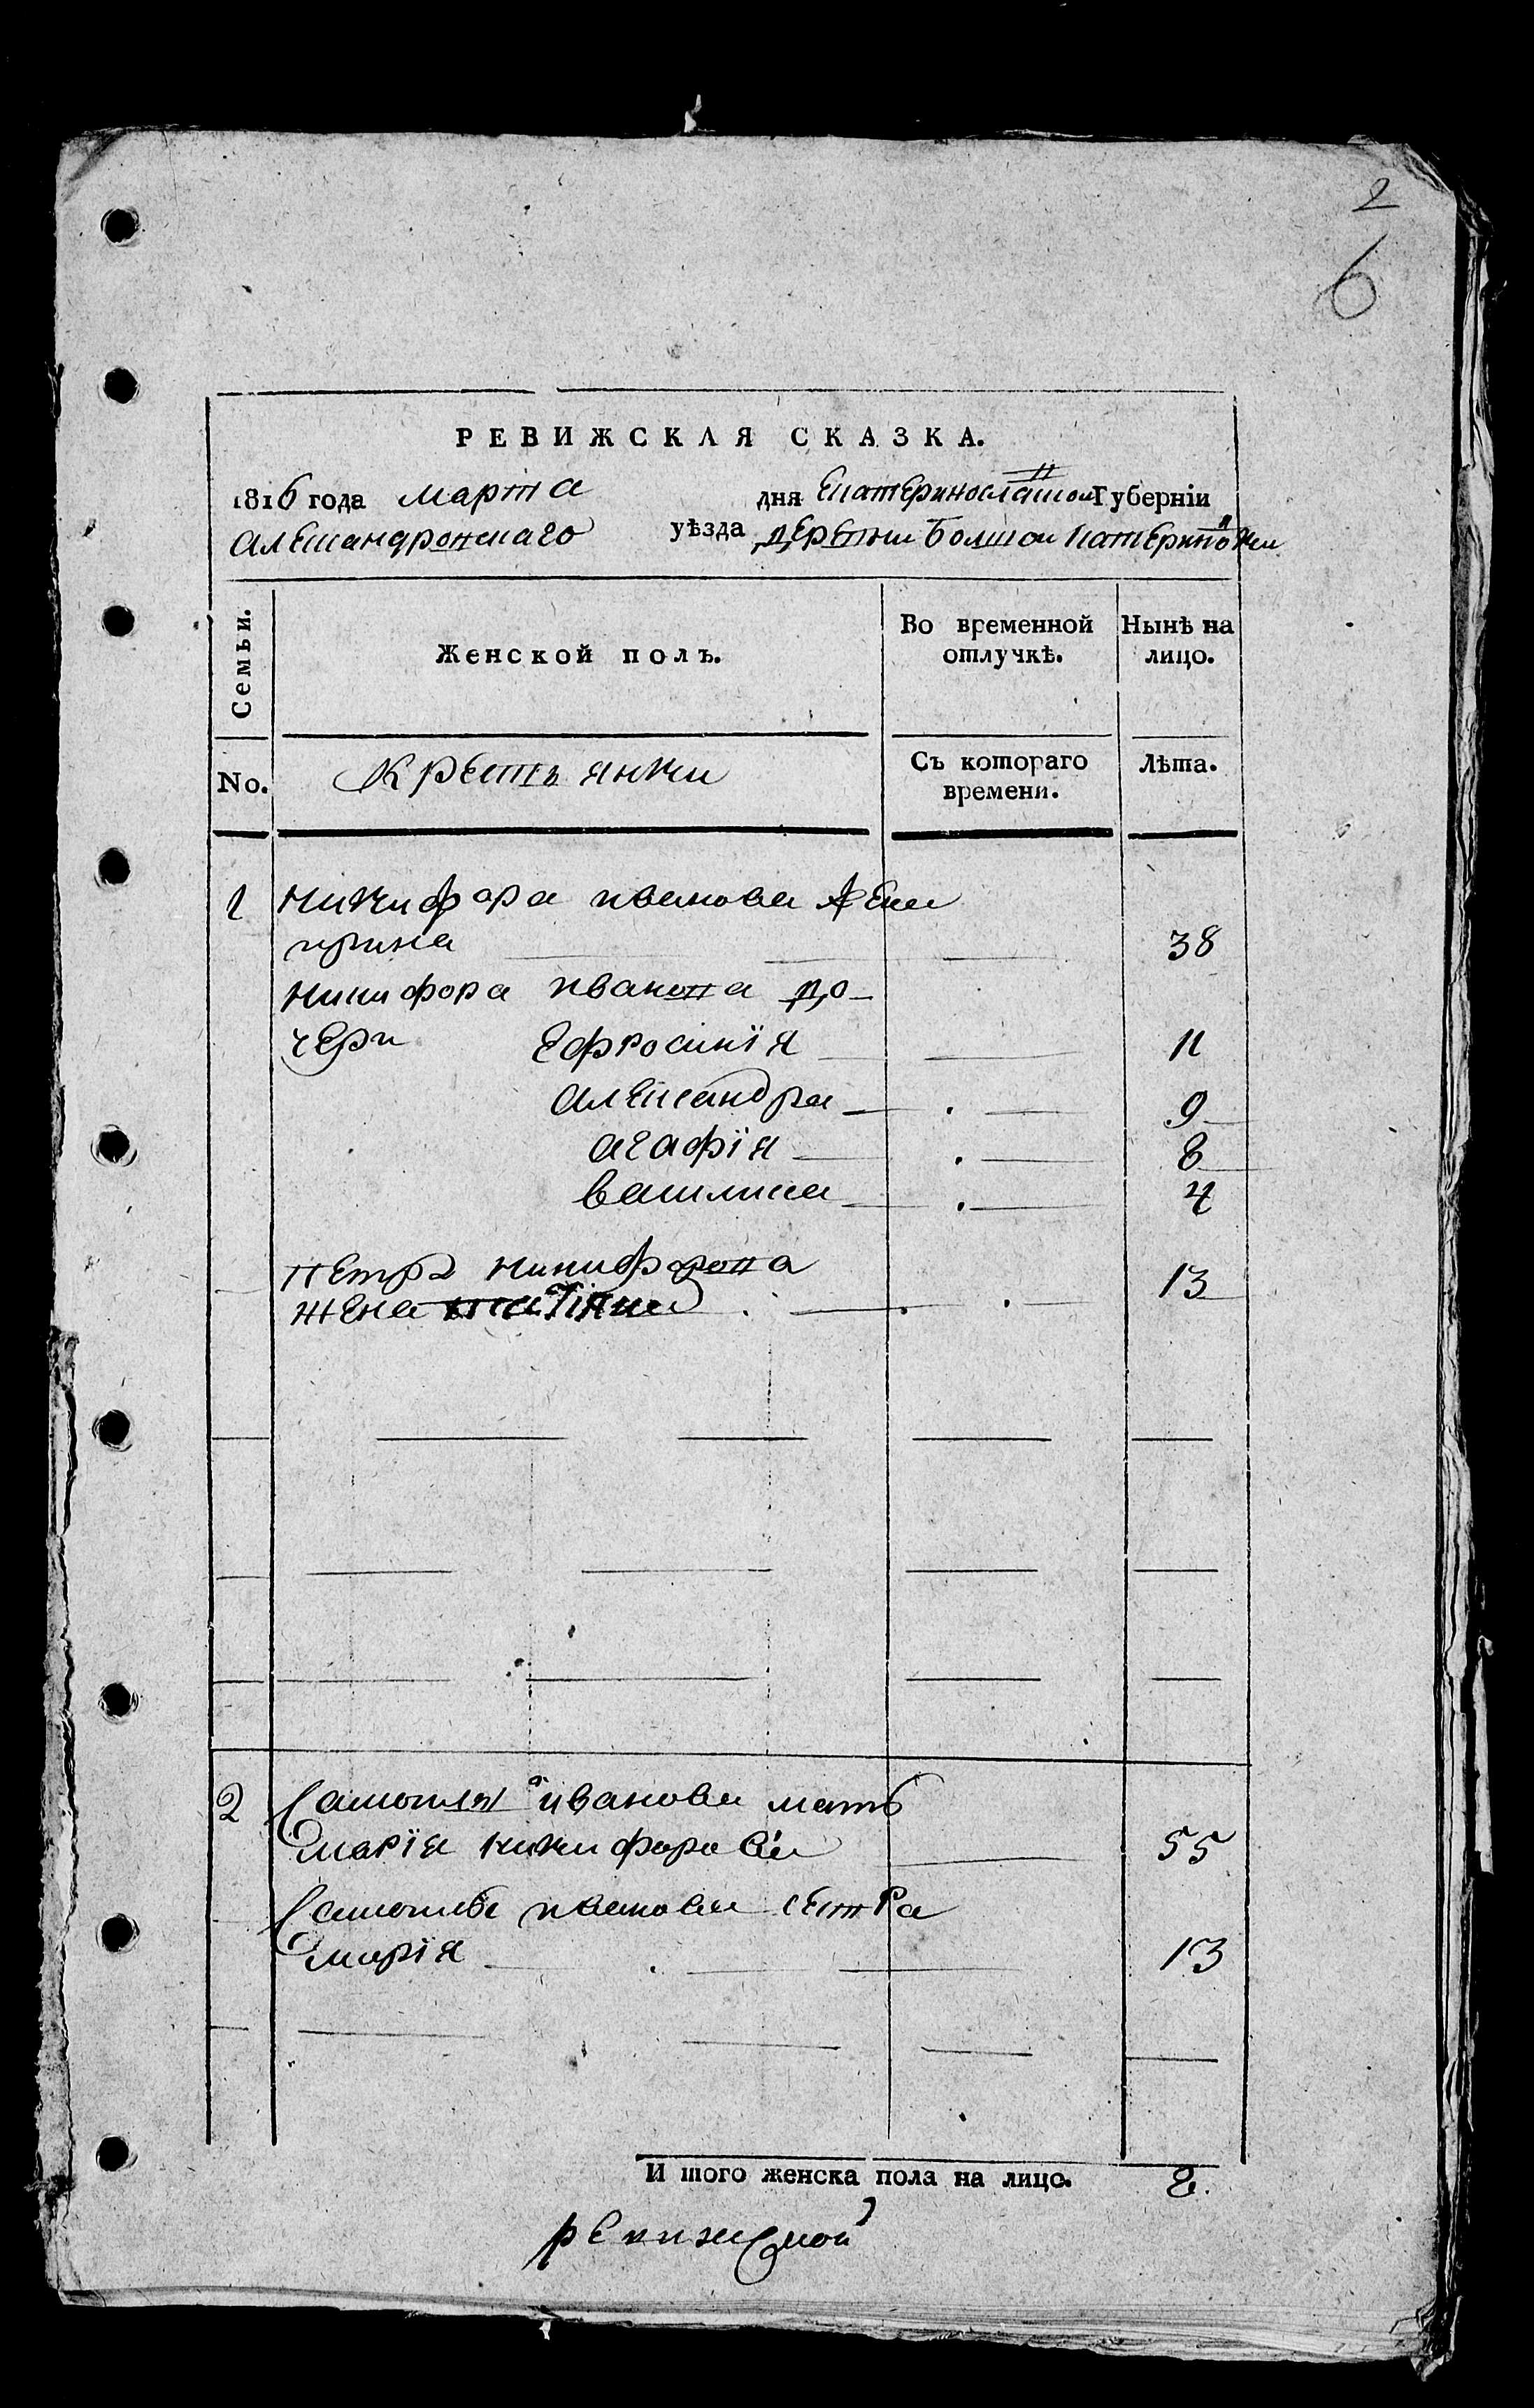 2
6
РЕВИЖСКАЯ СКАЗКА.
1816 года Марта дня Екатеринославской Губернїи
Александровскаго уѣзда деревни Болшои Катериновки
Семьи. Женской полъ. Во временной отлучкѣ. Нынѣ на лицо.
No. Крестьянки Съ котораго времени. Лѣта.
1 Никифора иванова жена
ирина 38
Никифора иванова до-
чери Ефросинїя 11
александра 9
агафїя 8
василиса 4
петра никифорова
жена татїяна 13
2 иванова мать
марїя никифорова 55
иванова сестра
марїя 13
И того женска пола на лицо. 8.